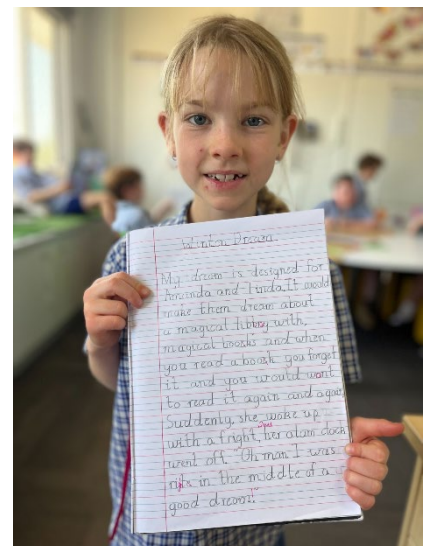 Winter Dream
My dream is designed for
Amanda and Linda. It would
make them dream about
a magical library with,
magical books and when
you read a book you forget
it and you would want
to read it again and again
Suddenly, she woke up
with a fright, her alam clock
went off. "Oh man I was
right in the middle of a
good dream!"